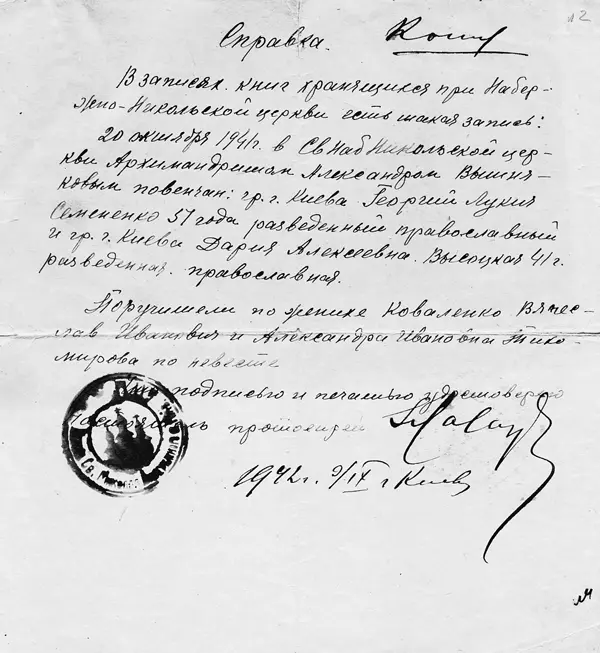 л2
Справка.
В записях книг хранящихся при Набер-
жно-Никольской церкви есть такая запись:
20 октября 1941г. в Св Наб Никольской цер-
кви Архимандритом Александром Вышня-
ковым повенчан: гр. г. Киева Георгий Лукич
Семененко 51 года разведенный православный
и гр. г. Киева Дария Алексеевна Высоцкая 41 г.
разведенная православная.
Поручители по женихе Коваленко Вячес-
лав Иванович и Александра Ивановна Тихо-
мирова по невесте
подписью и печатью удостоверяю
Настоятель протоиерей
1942 г. 9/IX г Киев
Св. Николая